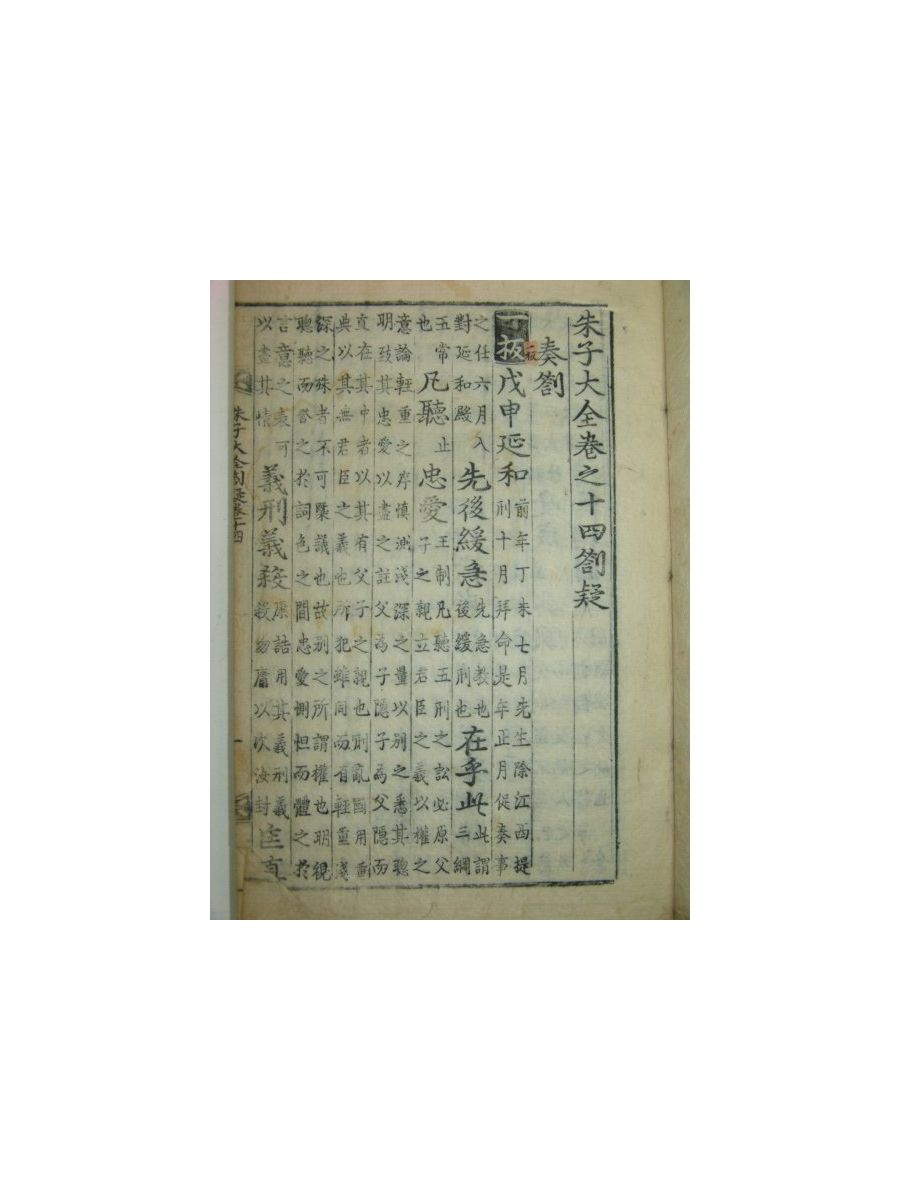 朱子大全卷之十四劄疑
奏劄
板戊申延和前年丁未七月先生除江西提刑十月拜命是年正月促奏事
之任六月入對延和殿先後緩急先急教也後緩刑也在乎此此謂三綱
五常也凡聽止忠愛王制凡聽五刑之訟必原父子之親立君臣之義以權之
意論輕重之序慎測淺深之量以別之悉其聰明致其忠愛以盡之註父為子隱子為父隱而
直在其中者以其有父子之親也刑亂國用重典以其無君臣之義也所犯雖同而有輕重淺
深之殊者不可槩議也故別之所謂權也明視聰聽而詧之於詞色之間忠愛惻怛而體之於
言意之表可以盡其情義刑義殺康誥用其義刑義殺勿庸以次汝封匡直
朱子大全劄疑卷十四
一